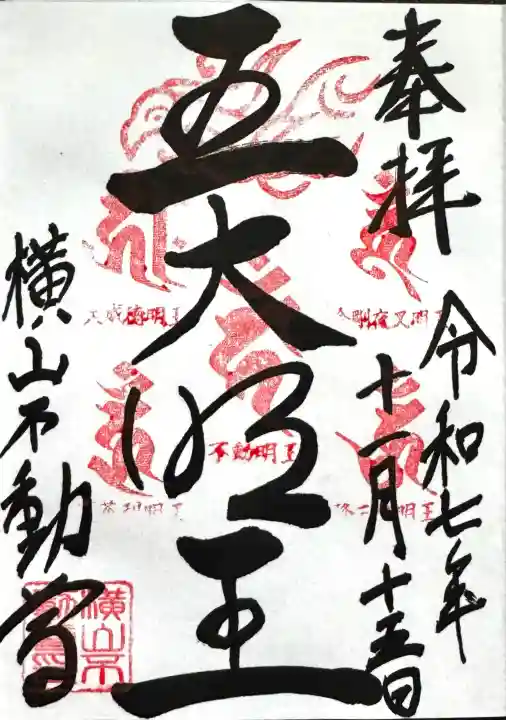 奉拝
令和七年
十一月十五日
五大明王
大威徳明王
金剛夜叉明王
不動明王
軍荼利明王
降三世明王
横山不動尊
横山不動尊